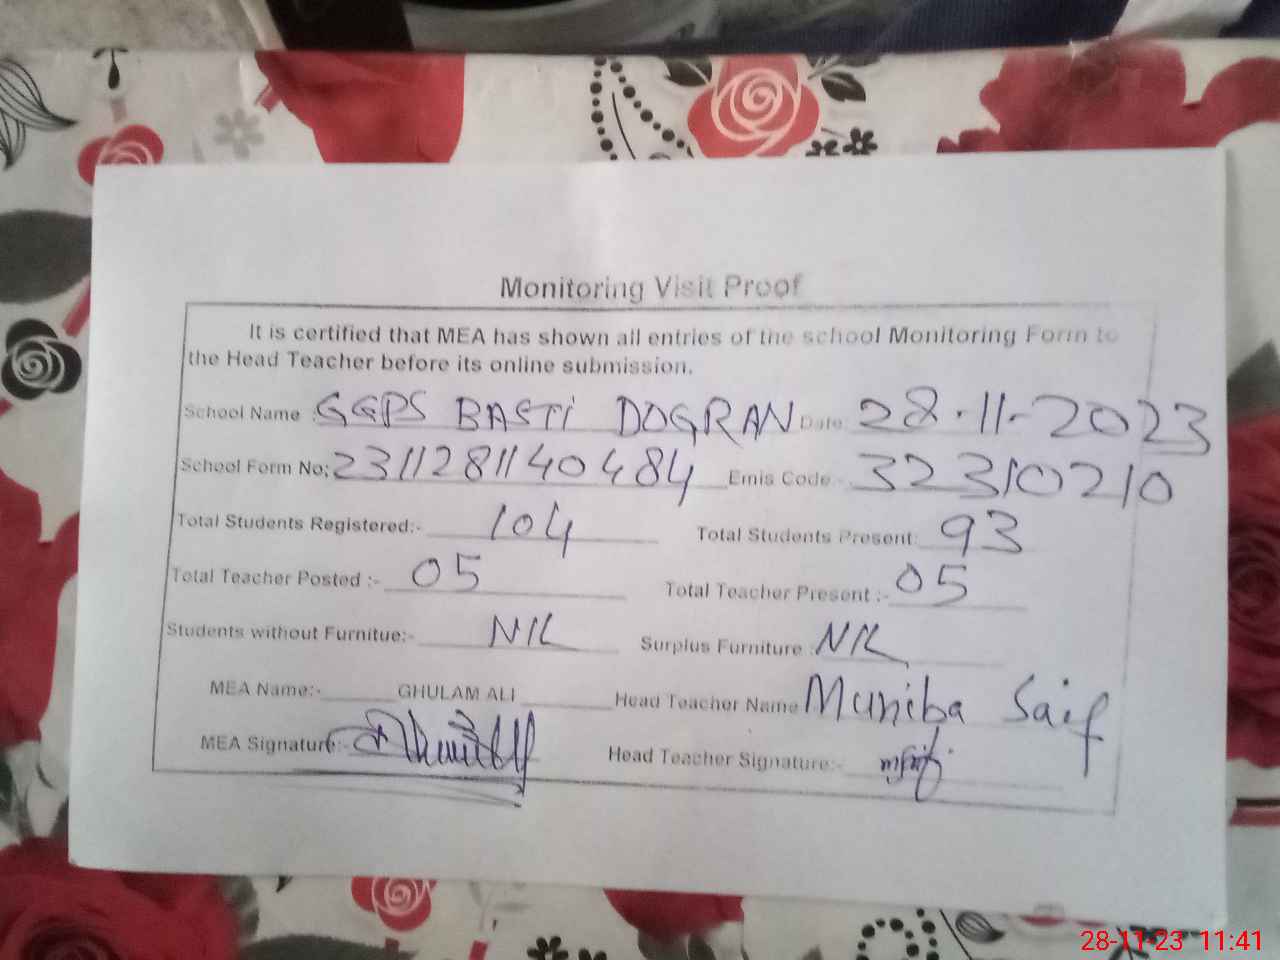 Monitoring Visit Proof
It is certified that MEA has shown all entries of the school Monitoring Form to
the Head Teacher before its online submission.
School Name : GGPS BASTI DOGRAN Date: 28-11-2023
School Form No; 2311281140484 Emis Code :- 32310210
Total Students Registered:- 104 Total Students Present: 93
Total Teacher Posted :- 05 Total Teacher Present :- 05
Students without Furnitue:- NIL Surplus Furniture : NIL
MEA Name:- GHULAM ALI Head Teacher Name Muniba Saif
MEA Signature:- Head Teacher Signature:-
28-11-23 11:41